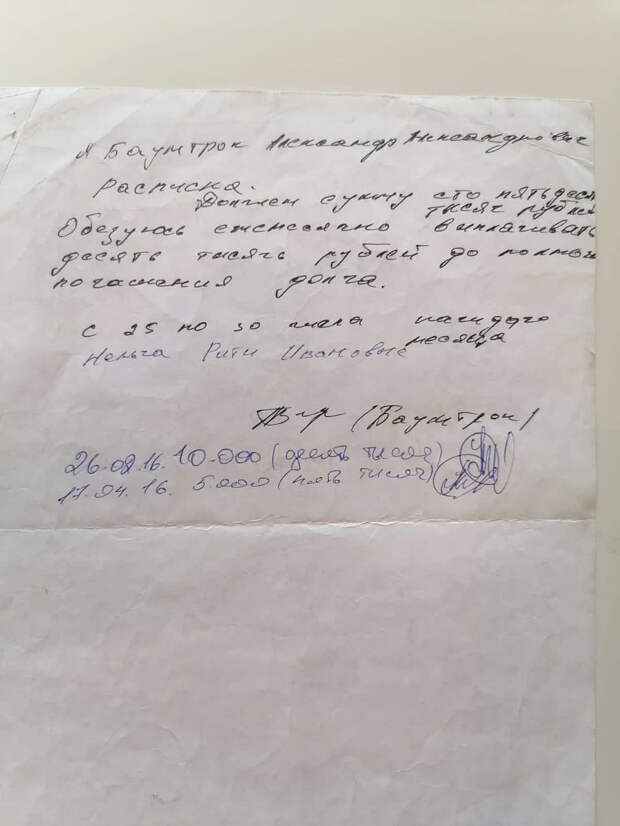 Я Баумтрок Александр Александрович
Расписка.
Должен сумму сто пятьдеся
тысяч рублей
Обезуюсь ежемесячно выплачивать
десять тысячь рублей до полного
погашения долга.
с 25 по 30 числа каждого
месяца
Рити Ивановне
(Баумтрок)
26.02.16. 10.000 (десять тысяч)
17.04.16. 5.000 (пять тысяч)